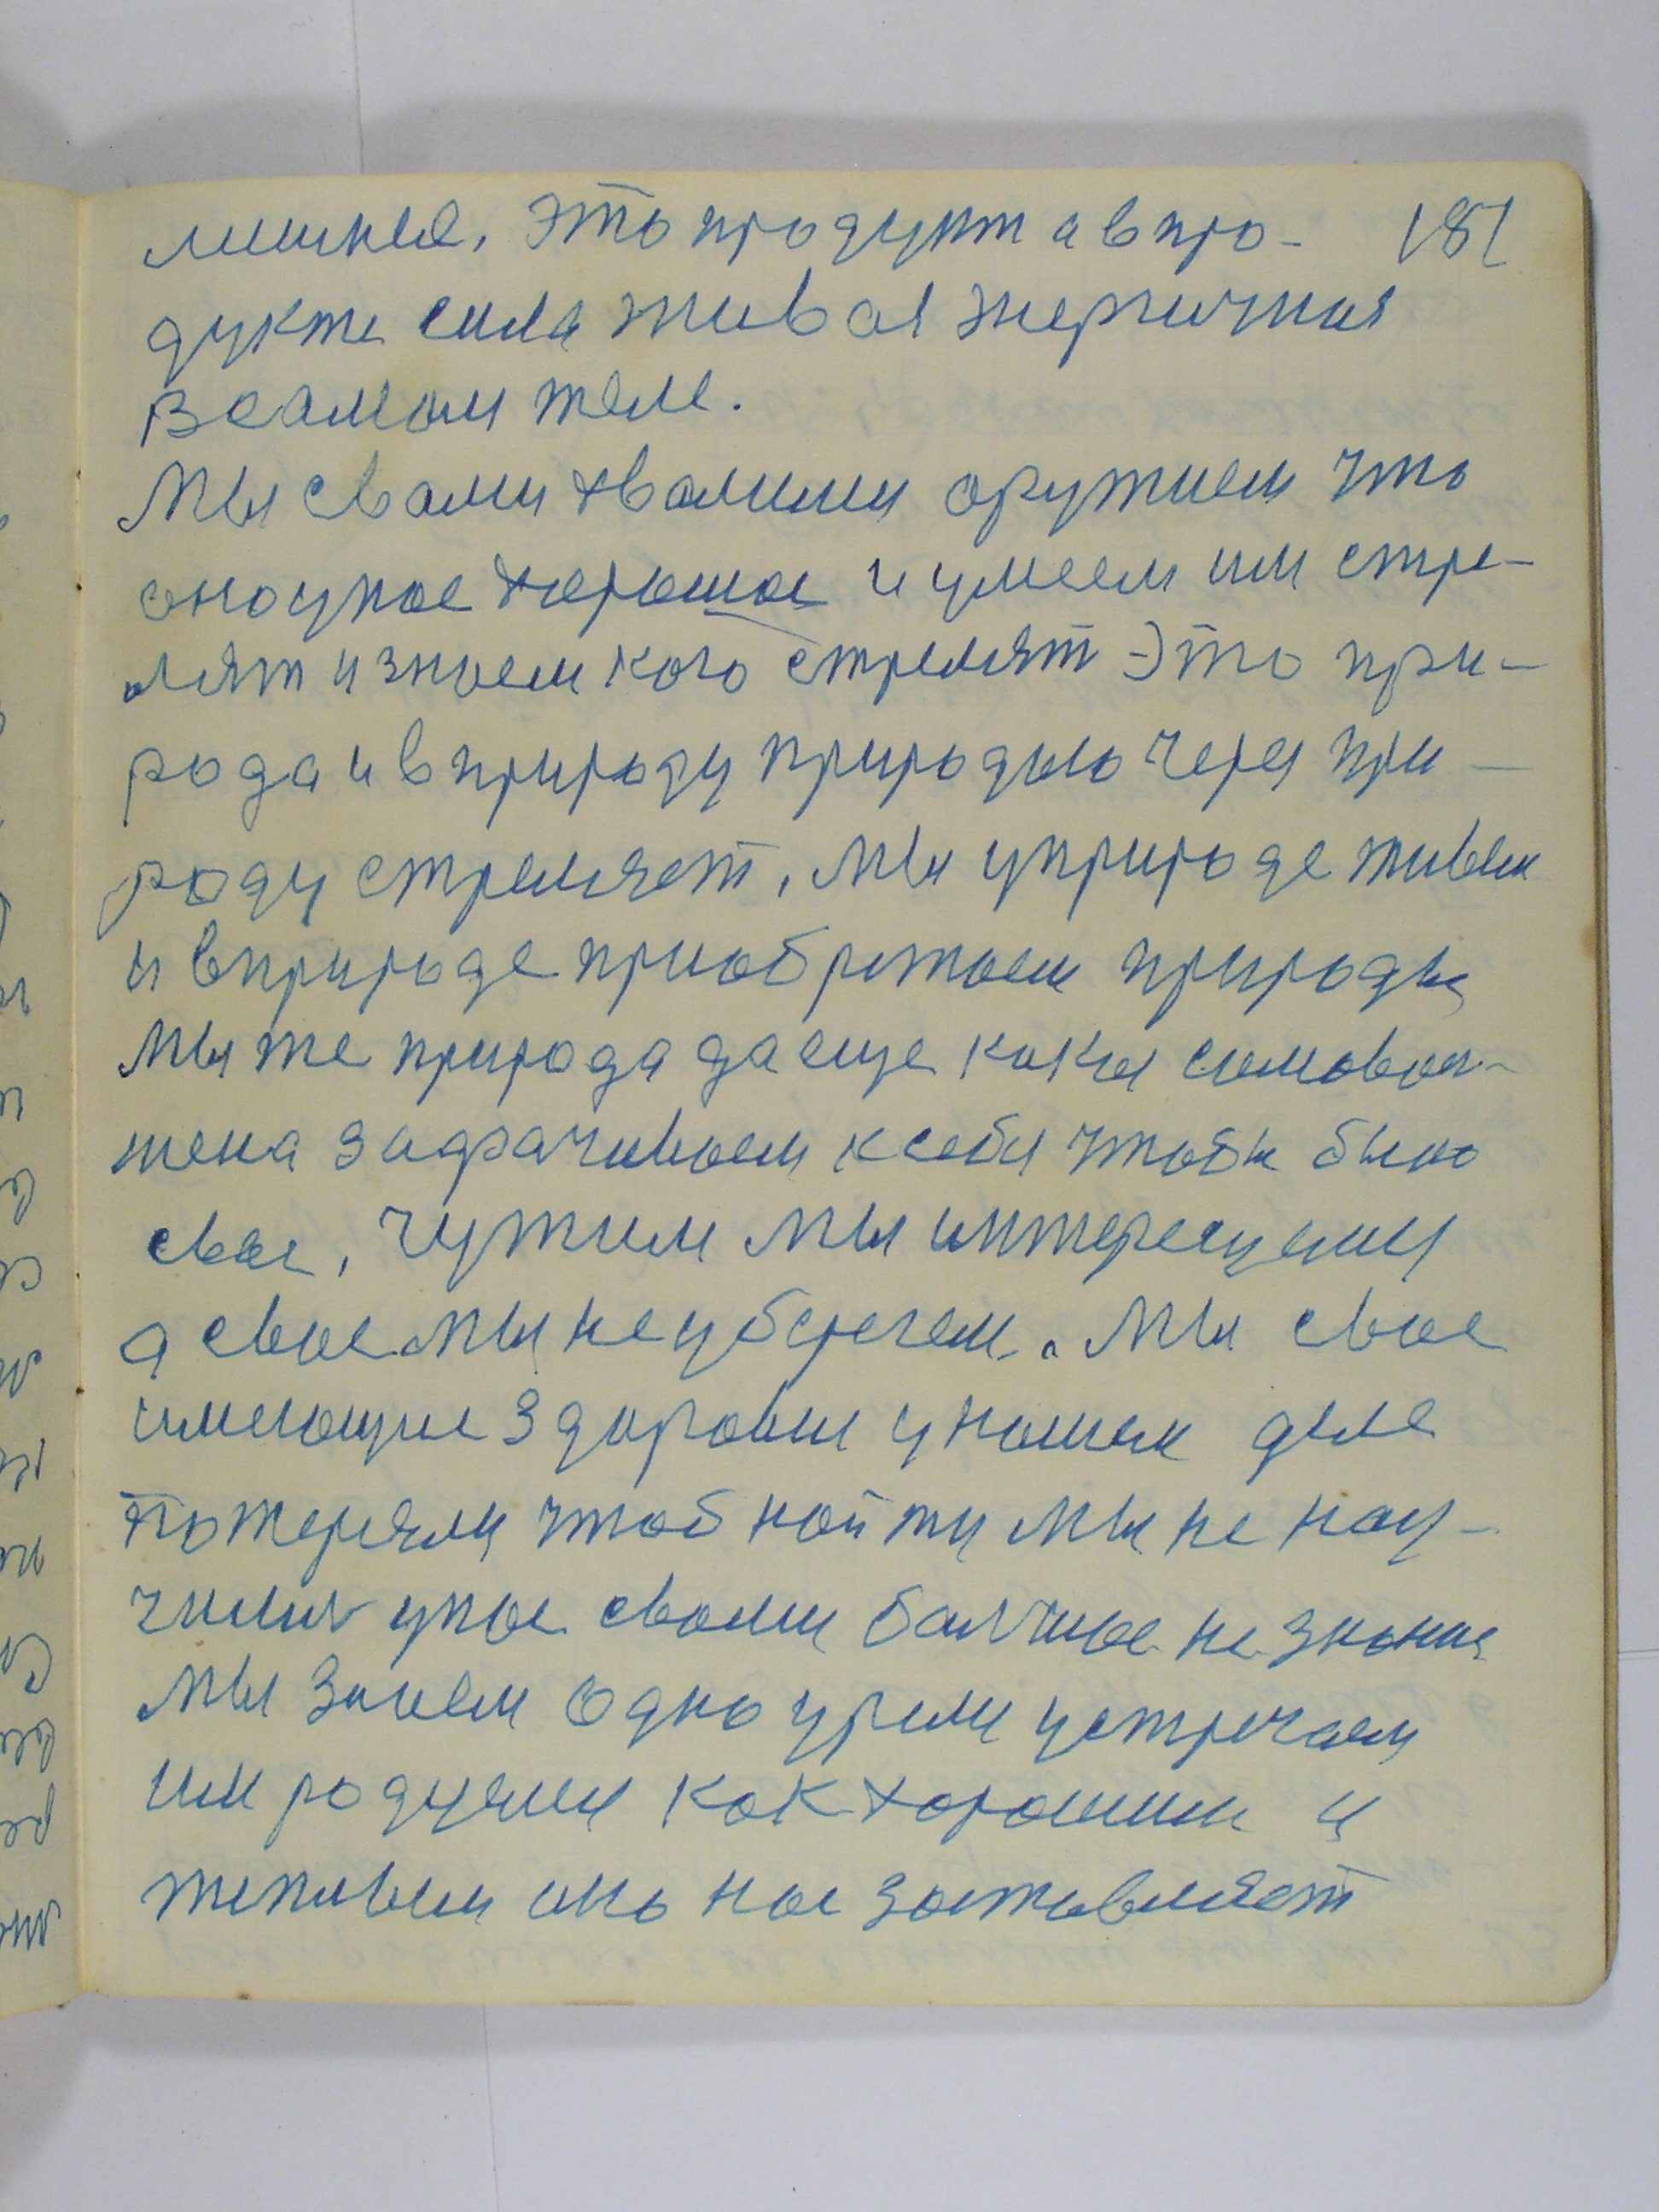 лишнее. Это продукт а в про- 181
дукте сила живая энергичная
в самом теле.
Мы с вами хвалимы оружием что
оно у нас хорошое и умеем им стре-
лят и знаем кого стрелят Это при-
рода и в природу природыю через при-
роду стреляет, мы у природе живем
и в природе приобретаем природы
мы же природа да еще какая
задрачиваем к себя чтобы было
свое, чужим мы интересуемы
а свое мы не убережем. Мы свое
имеющие здоровие у нашем деле
потеряли чтоб найти мы не нау-
чилис у нас самым балчное не знание
мы знаем одно устречаем
им радуемы как хорошим и
теплым оно нас заставляет